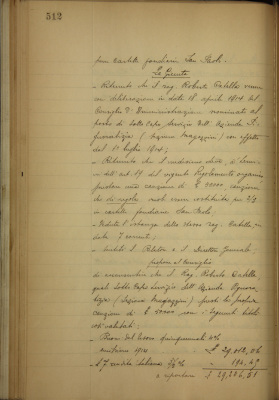 512
in cartelle fondiarie San Paolo.
La Giunta
- Ritenuto che il rag. Roberto Dabella venne
con deliberazione in data 18 aprile 1914 del
Consiglio d'Amministrazione nominato al
posto di Sotto Capo Servizio dell'Azienda
(Sezione Magazzini) con effetto
dal 1° luglio 1914;
- Ritenuto che il medesimo deve, a termini
dell'art. 19 del vigente Regolamento organico
prestare una cauzione di £
che di regola vuol essere costituita per 2/3
in cartelle fondiarie San Paolo;
- Veduta l'istanza dello stesso rag. Dabella in
data 7 corrente;
- Sentiti il Relatore e il Direttore Generale;
propone al Consiglio
di autorizzare che il Rag. Roberto Dabella
quale Sotto Capo Servizio dell'Azienda
(Sezione Magazzini) presti la propria
cauzione di £ con i seguenti titoli
così valutati:
- Buoni del tesoro quinquennali 4%
1914 £ 29,012,06
rendita italiana 194,45
a riportare £ 29,206,51